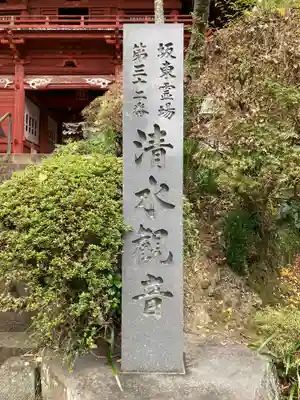 坂東霊場
第三十二番
清水観音